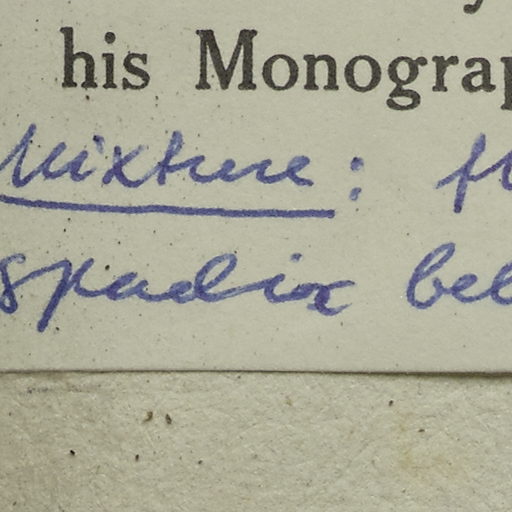 his Monograp
Mixture: fl
spadix bel